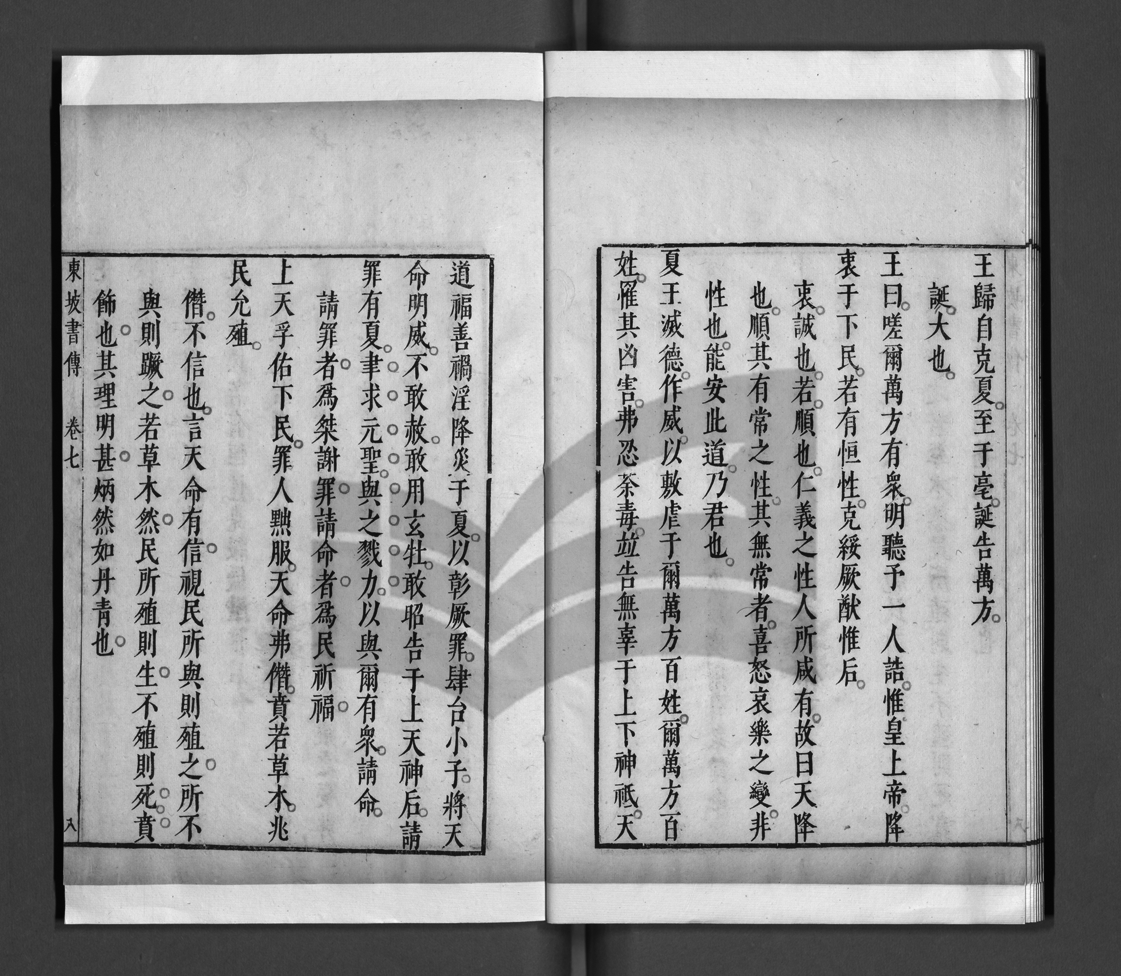 王歸自克夏至于亳誕告萬方
誕大也
王曰嗟爾萬方有衆明聽予一人誥惟皇上帝降
衷于下民若有恒性克綏厥猷惟后
衷誠也若順也仁義之性人所咸有故曰天降
也順其有常之性其無常者喜怒哀樂之變非
性也能安此道乃君也
夏王滅德作威以敷虐于爾萬方百姓爾萬方百
姓罹其凶害弗忍荼毒並告無辜于上下神祇天
道福善禍淫降災于夏以彰厥罪肆台小子將天
命明威不敢赦敢用玄牡敢昭告于上天神后請
罪有夏聿求元聖與之戮力以與爾有衆請命
請罪者爲桀謝罪請命者爲民祈福
上天孚佑下民罪人黜服天命弗僭賁若草木兆
民允殖
僭不信也言天命有信視民所與則殖之所不
與則蹶之若草木然民所殖則生不殖則死賁
飾也其理明甚炳然如丹青也
東坡書傳 卷七 八